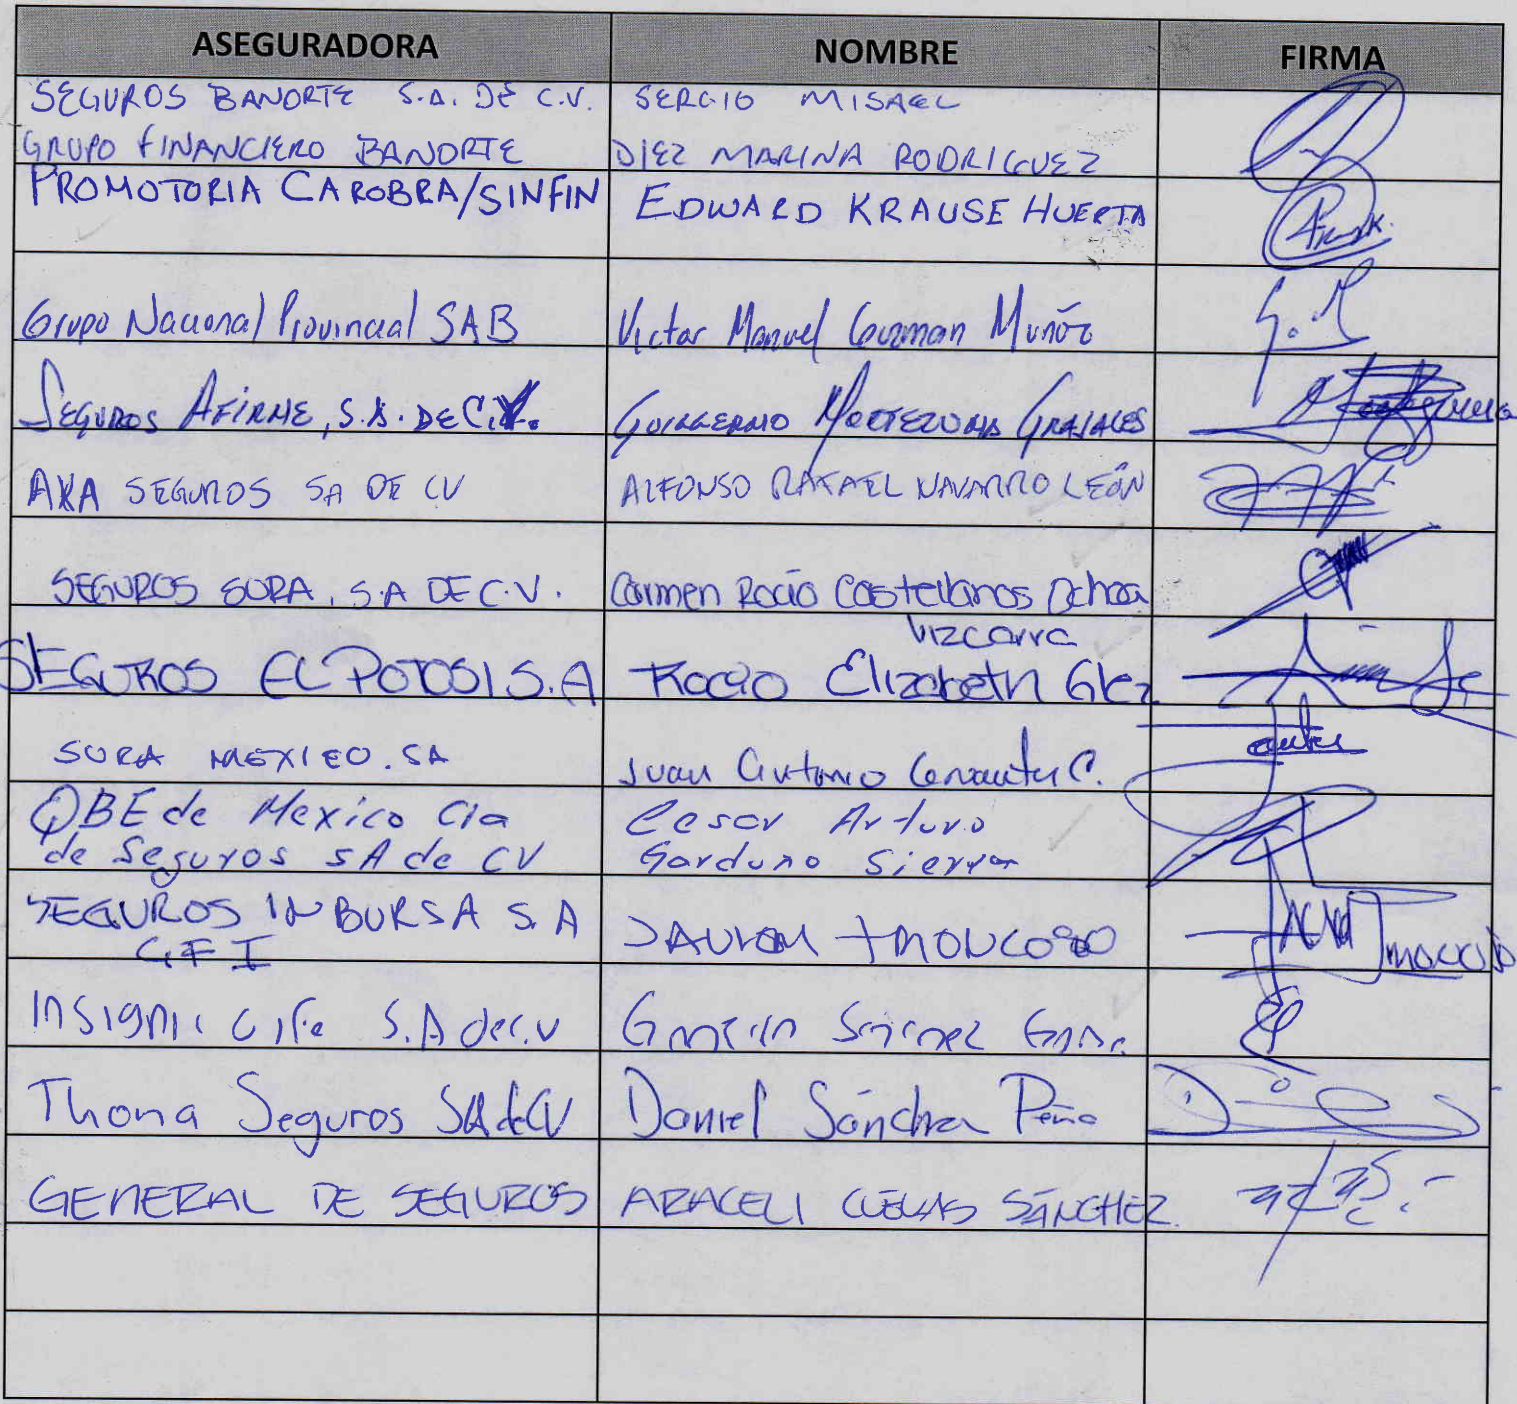 ASEGURADORA NOMBRE FIRMA
SEGUROS BANORTE S.A. DE C.V. SERGIO MISAEL
GRUPO FINANCIERO BANORTE DIEZ MARINA RODRIGUEZ
PROMOTORIA CAROBRA/SINFIN EDWARD KRAUSE HUERTA
Grupo Nacional Provincial SAB Victor Manuel Guzman Muñóz
SEGUROS AFIRME, S.A. DE C.V. GUILLERMO MOCTEZUMA GRAJALES
AXA SEGUROS SA DE CV ALFONSO RAFAEL NAVARRO LEÓN
SEGUROS SURA, S.A DE C.V. Carmen Rocío Castellanos Ochoa
Vizcarra
SEGUROS EL POTOSI S.A Rocío Elizabeth Glez
SURA MEXICO. SA Juan Antonio Cervantes C.
QBE de Mexico Cia Cesar Arturo
de Seguros SA de CV Garduno Sierra
SEGUROS INBURSA S.A
GFI
S.A de C.V
Thona Seguros SA de CV Daniel Sánchez Peña
GENERAL DE SEGUROS ARACELI CUEVAS SÁNCHEZ.